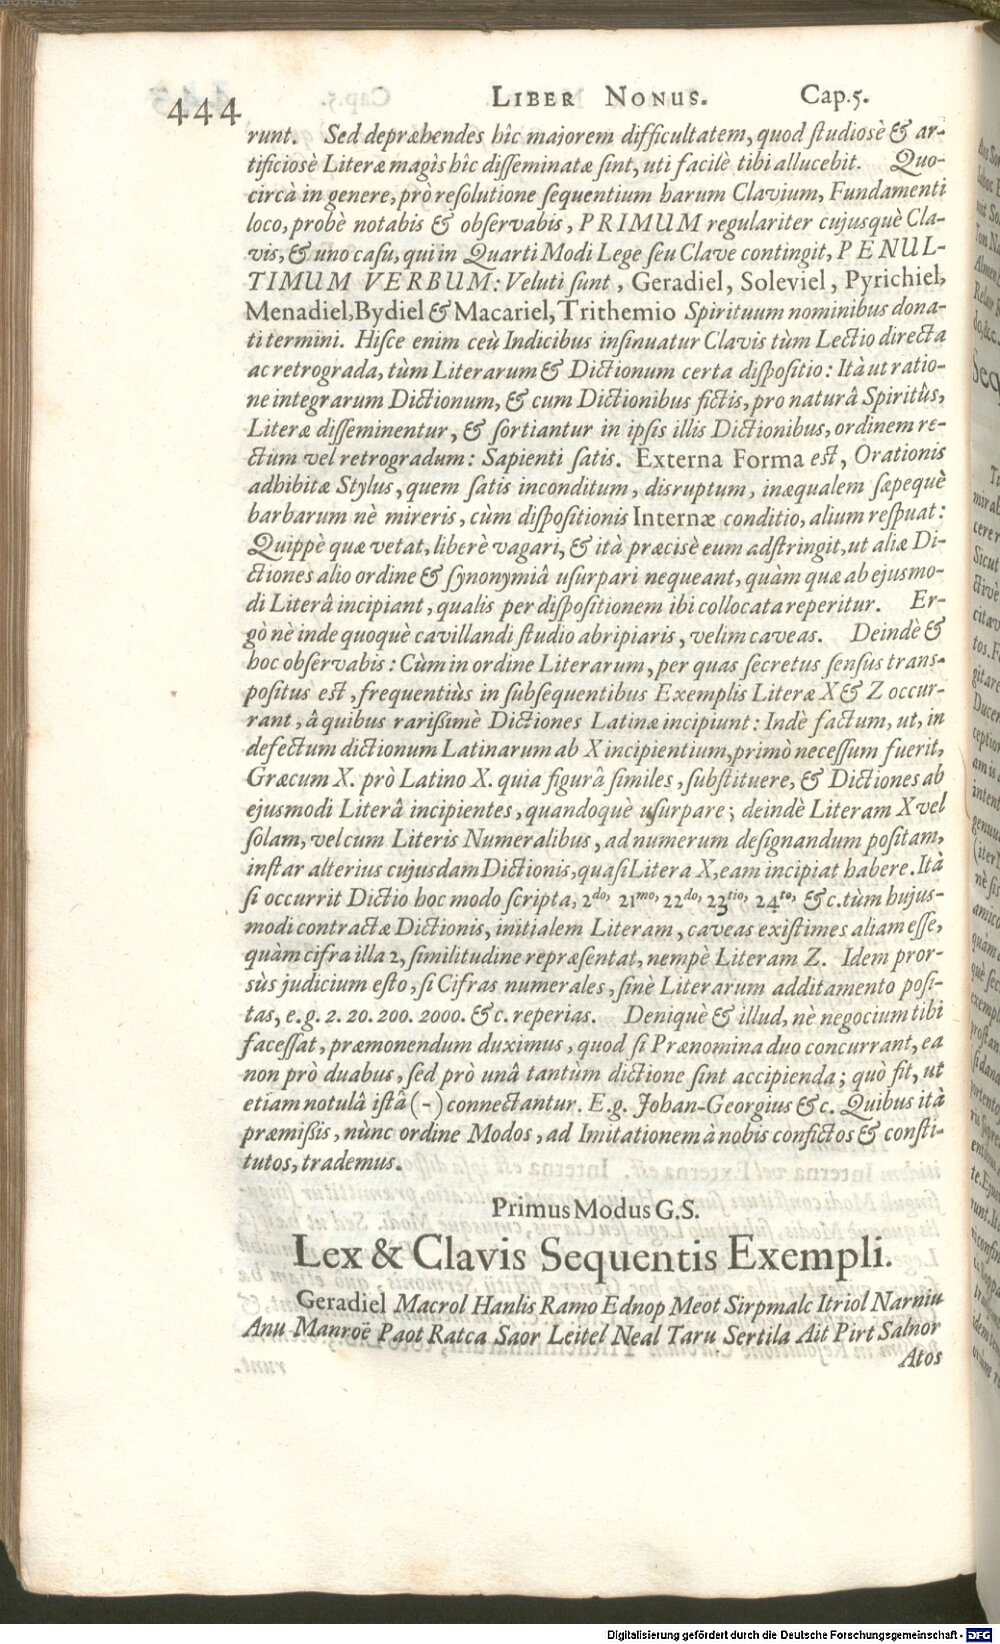 444 LIBER NONUS. Cap.5.
runt. Sed depræhendes hîc majorem difficultatem, quod ſtudiosè & ar-
tificiosè Literæ magìs hîc diſſeminatæ ſint, uti facilè tibi allucebit. Quo-
circà in genere, prò reſolutione ſequentium harum Clavium, Fundamenti
loco, probè notabis & obſervabis, PRIMUM regulariter cujusquè Cla-
vis, & uno caſu, qui in Quarti Modi Lege ſeu Clave contingit, PENUL-
TIMUM VERBUM: Veluti ſunt, Geradiel, Soleviel, Pyrichiel,
Menadiel, Bydiel & Macariel, Trithemio Spirituum nominibus dona-
ti termini. Hiſce enim ceù Indicibus inſinuatur Clavis tùm Lectio directa
ac retrograda, tùm Literarum & Dictionum certa diſpoſitio: Ità ut ratio-
ne integrarum Dictionum, & cum Dictionibus fictis, pro naturâ Spiritûs,
Literæ diſſeminentur, & ſortiantur in ipſis illis Dictionibus, ordinem re-
ctum vel retrogradum: Sapienti ſatis. Externa Forma eſt, Orationis
adhibitæ Stylus, quem ſatis inconditum, disruptum, inæqualem ſæpequè
barbarum nè mireris, cùm diſpoſitionis Internæ conditio, alium reſpuat:
Quippè quæ vetat, liberè vagari, & ità præcisè eum adſtringit, ut aliæ Di-
ctiones alio ordine & ſynonymiâ uſurpari nequeant, quàm quæ ab ejusmo-
di Literâ incipiant, qualis per diſpoſitionem ibi collocata reperitur. Er-
gò nè inde quoquè cavillandi ſtudio abripiaris, velim caveas. Deindè &
hoc obſervabis: Cùm in ordine Literarum, per quas ſecretus ſenſus trans-
poſitus eſt, frequentiùs in ſubſequentibus Exemplis Literæ X & Z occur-
rant, â quibus rarißimè Dictiones Latinæ incipiunt: Indè factum, ut, in
defectum dictionum Latinarum ab X incipientium, primò neceſſum fuerit,
Græcum X. prò Latino X. quia figurâ ſimiles, ſubſtituere, & Dictiones ab
ejusmodi Literâ incipientes, quandoquè uſurpare; deindè Literam X vel
ſolam, vel cum Literis Numeralibus, ad numerum deſignandum poſitam,
inſtar alterius cujusdam Dictionis, quaſi Litera X, eam incipiat habere. Ità
ſi occurrit Dictio hoc modo ſcripta, 2do, 21mo, 22do, 23tio, 24to, & c. tùm hujus-
modi contractæ Dictionis, initialem Literam, caveas exiſtimes aliam eſſe,
quàm cifra illa 2, ſimilitudine repræſentat, nempè Literam Z. Idem pror-
sùs judicium eſto, ſi Cifras numerales, ſinè Literarum additamento poſi-
tas, e.g. 2. 20. 200. 2000. & c. reperias. Deniquè & illud, nè negocium tibi
faceſſat, præmonendum duximus, quod ſi Prænomina duo concurrant, ea
non prò duabus, ſed prò unâ tantùm dictione ſint accipienda; quò fit, ut
etiam notulâ iſtâ (-) connectantur. E.g. Johan-Georgius & c. Quibus ità
præmißis, nùnc ordine Modos, ad Imitationem à nobis confictos & conſti-
tutos, trademus.
Primus Modus G.S.
Lex & Clavis Sequentis Exempli.
Geradiel Macrol Hanlis Ramo Ednop Meot Sirpmalc Itriol Narniu
Anu Manroë Paot Ratca Saor Leitel Neal Taru Sertila Ait Pirt Salnor
Atos
Digitalisierung gefördert durch die Deutsche Forschungsgemeinschaft - DFG